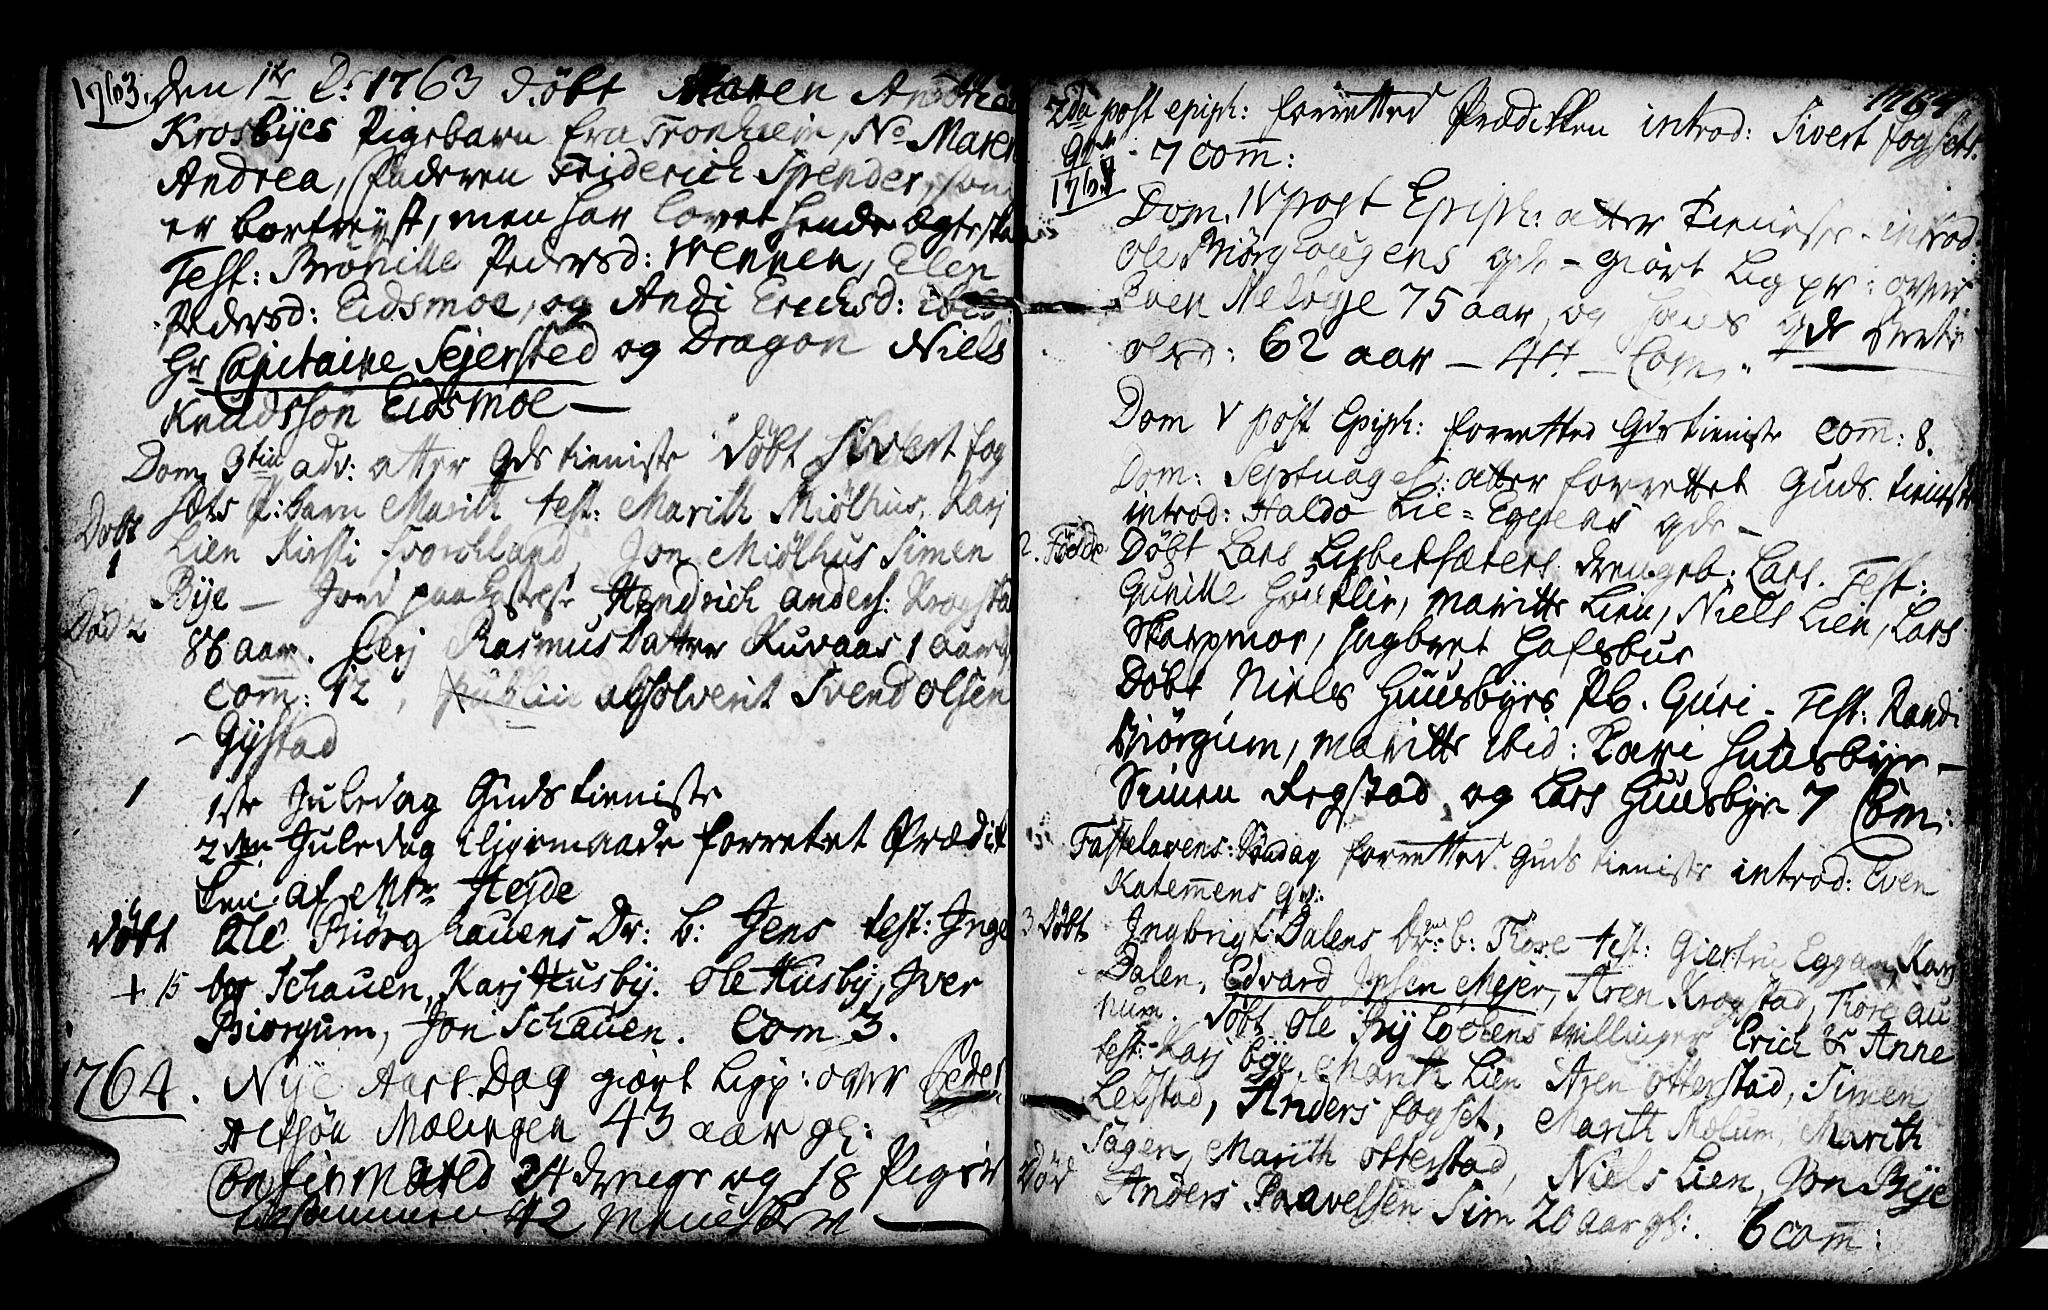 1763. Den 1te D: 1763 döbt Maren Andrea
Krosbÿes Pigebarn fra Tronheim, No Maren
Andrea, Faderen Friderich Spender, som
er bortreÿst, men har lovet hende Ægteska
Test: Brönille Pedersd: Wennen, Elen
Pedersd: Eidsmoe, og Andi Erichsd: ibid
Hr Capitaine Sejersted og Dragon Niels
Knudssön Eidsmoe —
Dom 3tia adv: atter Gds tieniste döbt Sivert fog
sets P: barn Marith test: Marith Miölhus, Karj
Döbt 1
Lien Kirsti Jon Miölhus Simen
Bÿe — Jord paa Hendrich anders: Krogsta
Död 2
86 aar. Rasmusdatter Kuvaas 1 aar
Com: 12, publice absolverit Svend olsen
Gÿstad
1
1ste Juledag Guds tieniste
2den Juledag ligemaade forrettet Prædik
ken af Mr Hejde
döbt Ole Biörghauens Dr: b: Jens test: Inge
+ 15 bor Schauen, Karj Husbÿ. Ole Husbÿ, Iver
Biorgum, Jon Schauen. Com 3.
1764. Nÿe Aars Dag giort Ligp: over Peder
Alfsön Mælingen 43 aar gl:
Confirmered 24 drenge og 18 Piger
tilsammen 42 mennesker —
1764
2da post epiph: forretted Prædikken introd: Sivert fogsets
qde 7 com:
1764
Dom. IV post Epiph: atter tieniste introd:
Ole Biörghougens qde — giort Ligpr: over
Even Neloÿe 75 aar og hans qde Berete
olsd: 62 aar — 44 — Com
Dom V post Epiph: forretted Gdstieniste com: 8.
Dom: Septuages: atter forrettet Guds tieniste
introd: Haldo Lie = Eggens qde —
2. Födde Döbt Lars Lisbetsæters drengeb: Lars. Test:
Gunille maritte Lien, Niels Lien, Lars
Skarpmor, Ingbret Hafsbur
Döbt Niels Huusbÿes Pb. Guri — Test: Randi
Biörgum, maritte ibid: Kari Huusbÿe —
Simen Regstad og Lars Huusbÿe 7 Com:
Fastelavens: Söndag forretted Guds tieniste introd: Even
Katemens qde:
3 Döbt Ingbrigt Dalens Dr: b: Tore test: Giertru Eggan, Karj
Dalen, Edvard Ipsen Mejer, Aren Krogstad, Tore au
num. döbt Ole Bÿ Löckens tvillinger Erich & Anne
test: Karj bÿe, Marith Lien Aren otterstad, Simen
Lefstad, Anders fogset, Marith Mælum, Marith
Sagen, Marith otterstad, Niels Lien, Jon Bÿe
Död Anders Paavelsen Sim 20 aar gl: 6 com: